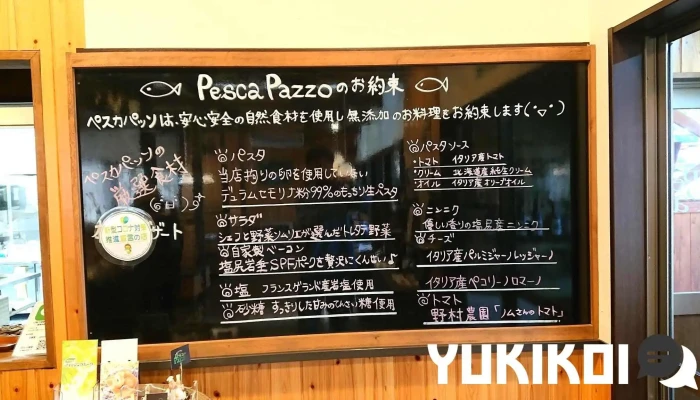 Pesca Pazzoのお約束
ペスカパッツォは、安心安全の自然食材を使用し無添加のお料理をお約束します(°▽°)
ペスカパッツォの
厳選食材
パスタ
当店拘りの卵を使用している
デュラムセモリナ粉99%のもっちり生パスタ
サラダ
シェフと野菜ソムリエが選んだトレタテ野菜
自家製ベーコン
塩尻岩垂SPFポークを贅沢にくんせい♪
塩 フランスゲランド産岩塩使用
砂糖 すっきりした甘みのてんさい糖使用
パスタソース
・トマト イタリア産トマト
・クリーム 北海道産純生クリーム
・オイル イタリア産オリーブオイル
ニンニク
優しい香りの塩尻産ニンニク
チーズ
イタリア産パルミジャーノレッジャーノ
イタリア産ペコリーノロマーノ
トマト
野村農園「ノムさんのトマト」
新型コロナ対策
推進宣言の店
ザート
YUKIKOI